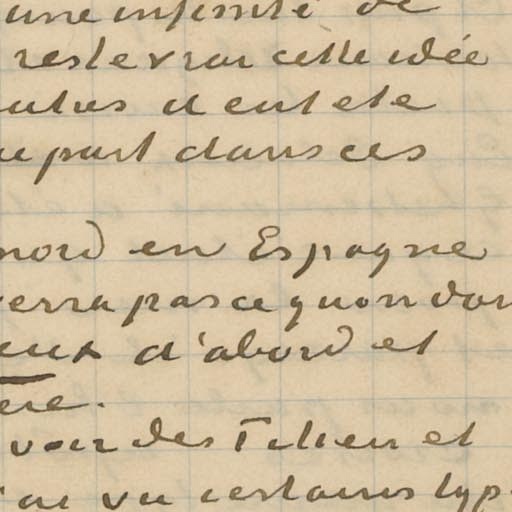 une infinité de
reste vrai cette idée
autres a eut ete
part dans ces
nord en Espagne
verra pas ce quon don
eux d'abord et
ere.
voir des Titien et
ai vu certains typ